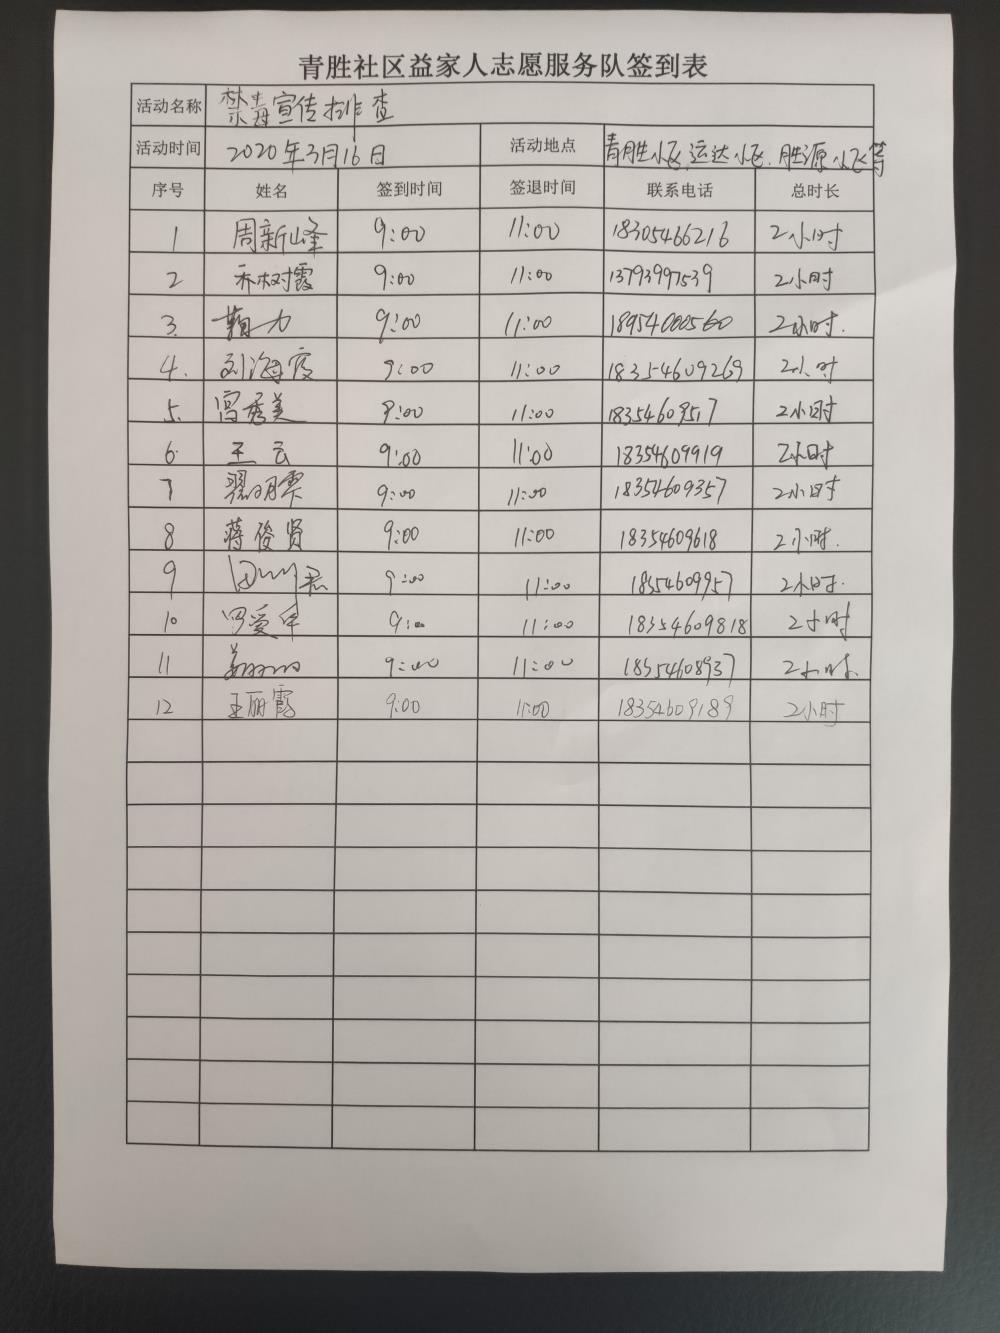 青胜社区益家人志愿服务队签到表
活动名称 禁毒宣传排查
活动时间 2020年3月16日 活动地点 青胜小区,运达小区.胜源小区等
序号 姓名 签到时间 签退时间 联系电话 总时长
1 周新峰 9:00 11:00 18305466216 2小时
2 乔树霞 9:00 11:00 13793997539 2小时
3. 9:00 11:00 18954000560 2小时.
4. 刘海霞 9:00 11:00 18354609269 2小时
5. 冯秀美 9:00 11:00 18354609517 2小时
6. 王云 9:00 11:00 18354609919 2小时
7 翟明霞 9:00 11:00 18354609357 2小时
8 蒋俊贤 9:00 11:00 18354609618 2小时.
9 9:00 11:00 18354609957 2小时.
10 罗爱华 9:00 11:00 18354609818 2小时
11 9:00 11:00 18354608937 2小时.
12 王丽霞 9:00 11:00 18354609189 2小时